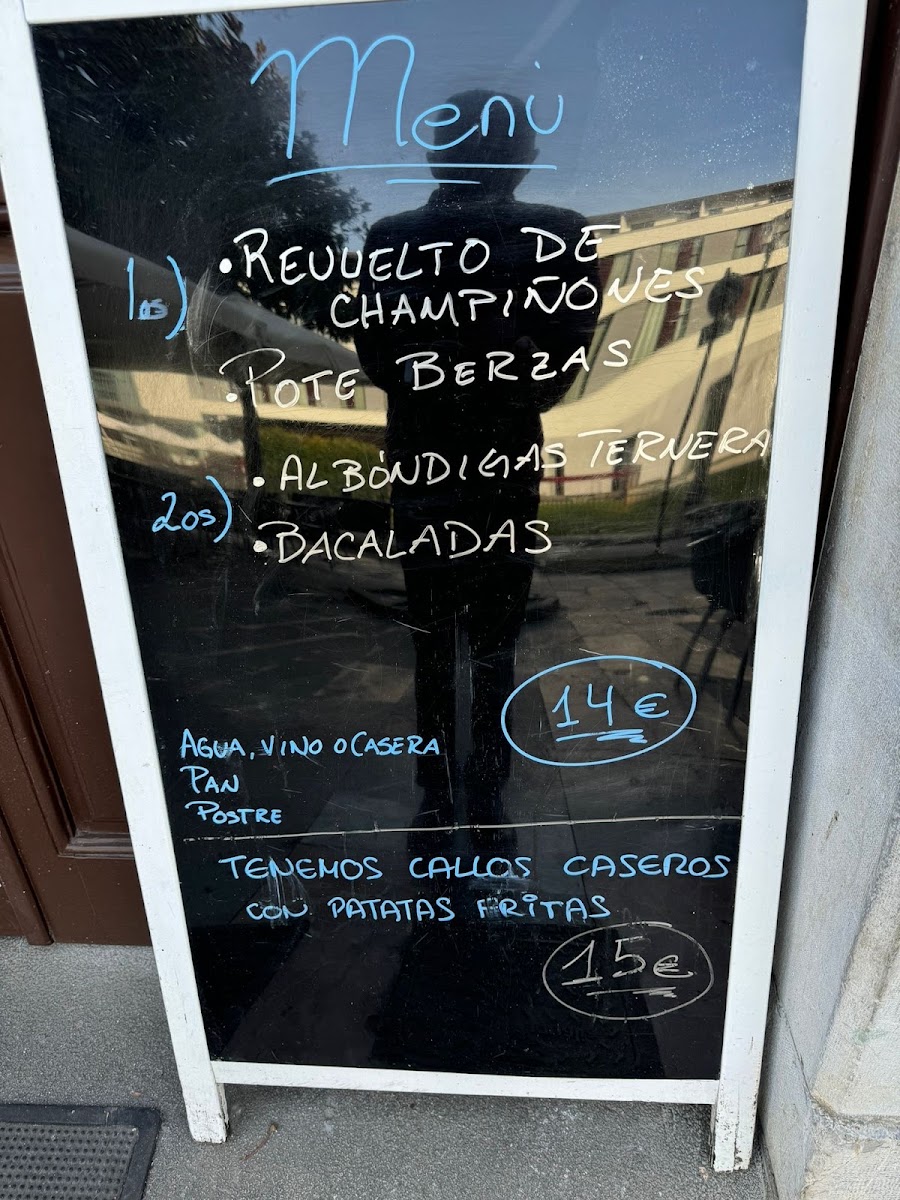 Menú
1os) • REVUELTO DE
CHAMPIÑONES
• POTE BERZAS
2os) • ALBÓNDIGAS TERNERA
• BACALADAS
14€
AGUA, VINO O CASERA
PAN
POSTRE
TENEMOS CALLOS CASEROS
CON PATATAS FRITAS
15€